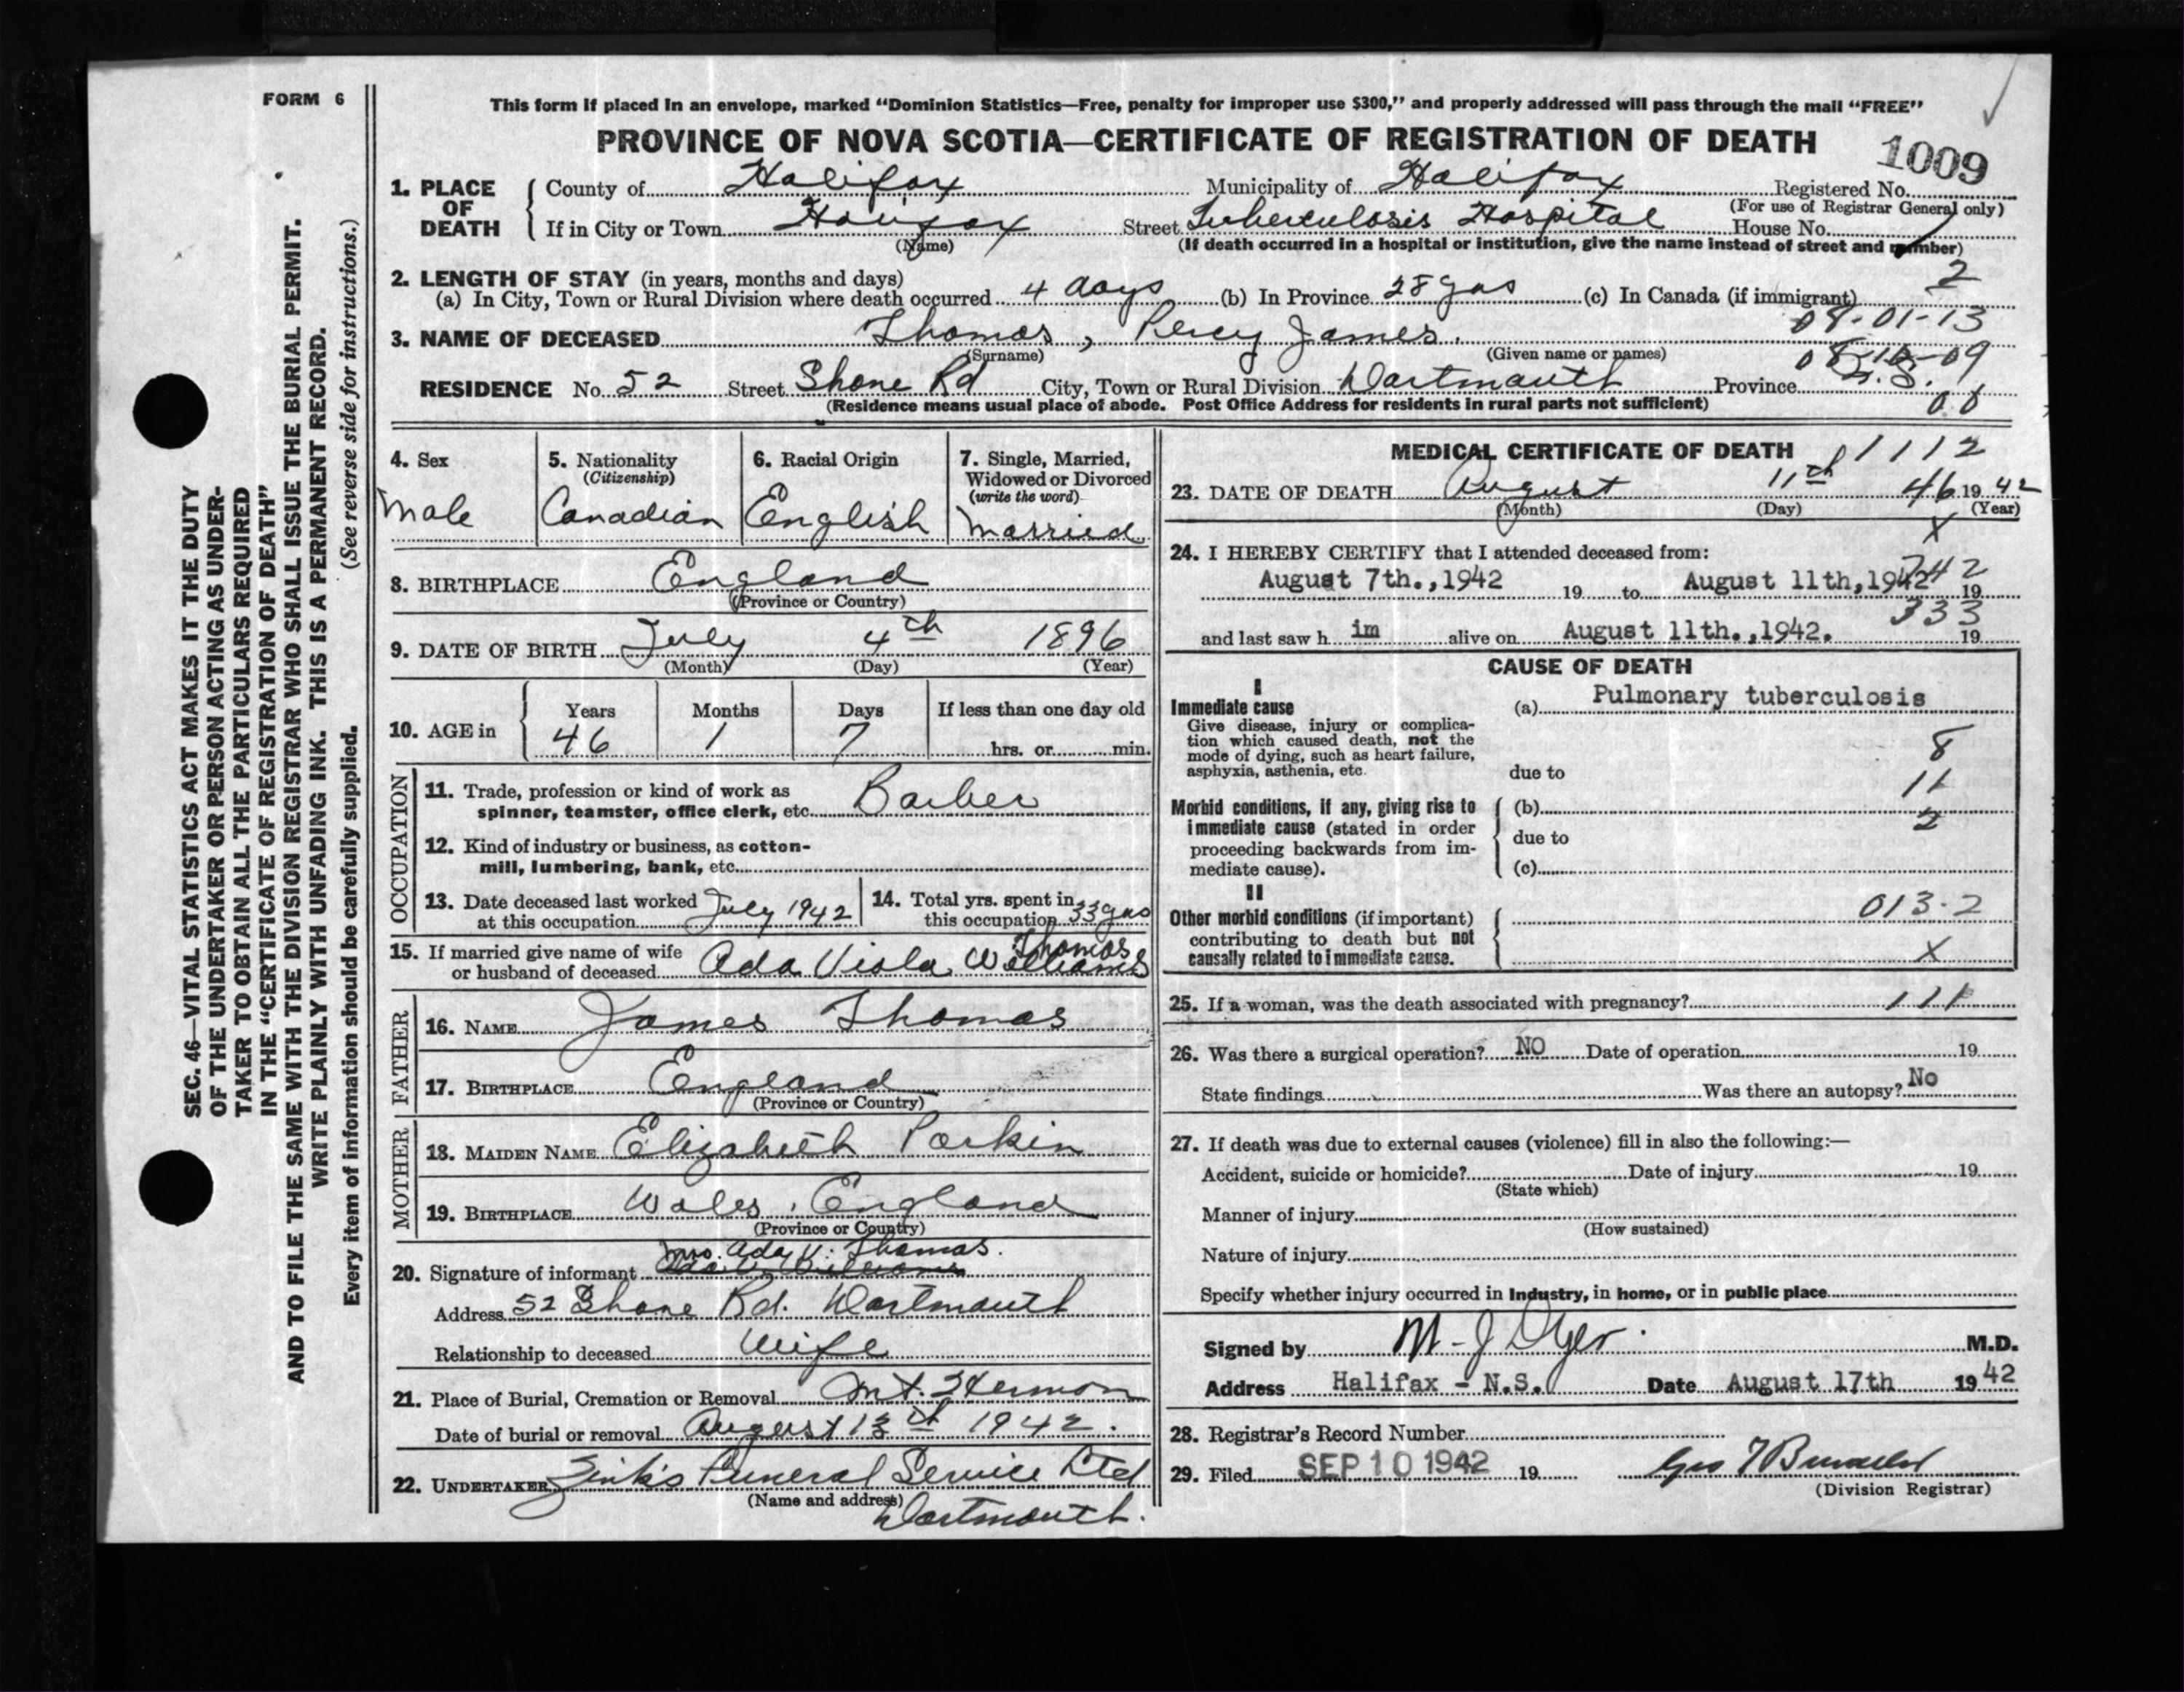 FORM 6
This form if placed in an envelope, marked “Dominion Statistics—Free, penalty for improper use $300,” and properly addressed will pass through the mail “FREE”
PROVINCE OF NOVA SCOTIA—CERTIFICATE OF REGISTRATION OF DEATH
1009
1. PLACE OF DEATH
County of Halifax Municipality of Halifax Registered No.
(For use of Registrar General only)
If in City or Town Halifax Street Tuberculosis Hospital House No.
(Name) (If death occurred in a hospital or institution, give the name instead of street and number)
2
2. LENGTH OF STAY (in years, months and days)
(a) In City, Town or Rural Division where death occurred 4 days (b) In Province 28 yrs (c) In Canada (if immigrant)
08-01-13
3. NAME OF DECEASED Thomas, Percy James.
(Surname) (Given name or names)
RESIDENCE No. 52 Street Shore Rd City, Town or Rural Division Dartmouth Province N.S.
(Residence means usual place of abode. Post Office Address for residents in rural parts not sufficient)
4. Sex
Male
5. Nationality
(Citizenship)
Canadian
6. Racial Origin
English
7. Single, Married,
Widowed or Divorced
(write the word)
Married
8. BIRTHPLACE England
(Province or Country)
9. DATE OF BIRTH July 4th 1896
(Month) (Day) (Year)
10. AGE in
Years Months Days If less than one day old
46 1 7 hrs. or min.
OCCUPATION
11. Trade, profession or kind of work as
spinner, teamster, office clerk, etc. Barber
12. Kind of industry or business, as cotton-
mill, lumbering, bank, etc.
13. Date deceased last worked
at this occupation July 1942
14. Total yrs. spent in
this occupation 33 yrs
15. If married give name of wife Thomas
or husband of deceased Ada Viola Williams
FATHER
16. NAME James Thomas
17. BIRTHPLACE England
(Province or Country)
MOTHER
18. MAIDEN NAME Elizabeth Parkin
19. BIRTHPLACE Wales, England
(Province or Country)
Mrs. Ada V. Thomas.
20. Signature of informant
Address 52 Shore Rd. Dartmouth
Relationship to deceased Wife
21. Place of Burial, Cremation or Removal Mt. Hermon
Date of burial or removal August 13th 1942.
22. UNDERTAKER Zink's Funeral Service Ltd
(Name and address) Dartmouth.
MEDICAL CERTIFICATE OF DEATH
1112
23. DATE OF DEATH August 11th 46 19 42
(Month) (Day) (Year)
X
24. I HEREBY CERTIFY that I attended deceased from:
August 7th.,1942 19 to August 11th,1942 19
333
and last saw h im alive on August 11th.,1942. 19
CAUSE OF DEATH
I
Immediate cause
Give disease, injury or complica-
tion which caused death, not the
mode of dying, such as heart failure,
asphyxia, asthenia, etc.
(a) Pulmonary tuberculosis
8
due to
11
Morbid conditions, if any, giving rise to
immediate cause (stated in order
proceeding backwards from im-
mediate cause).
(b)
2
due to
(c)
II
Other morbid conditions (if important)
contributing to death but not
causally related to immediate cause.
013-2
X
25. If a woman, was the death associated with pregnancy? 111
26. Was there a surgical operation? NO Date of operation 19
State findings Was there an autopsy? No
27. If death was due to external causes (violence) fill in also the following:—
Accident, suicide or homicide? Date of injury 19
(State which)
Manner of injury
(How sustained)
Nature of injury
Specify whether injury occurred in Industry, in home, or in public place
Signed by M. J Dyer. M.D.
Address Halifax - N.S. Date August 17th 1942
28. Registrar's Record Number
29. Filed SEP 10 1942 19
(Division Registrar)
SEC. 46—VITAL STATISTICS ACT MAKES IT THE DUTY
OF THE UNDERTAKER OR PERSON ACTING AS UNDER-
TAKER TO OBTAIN ALL THE PARTICULARS REQUIRED
IN THE “CERTIFICATE OF REGISTRATION OF DEATH”
AND TO FILE THE SAME WITH THE DIVISION REGISTRAR WHO SHALL ISSUE THE BURIAL PERMIT.
WRITE PLAINLY WITH UNFADING INK. THIS IS A PERMANENT RECORD.
Every item of information should be carefully supplied. (See reverse side for instructions.)